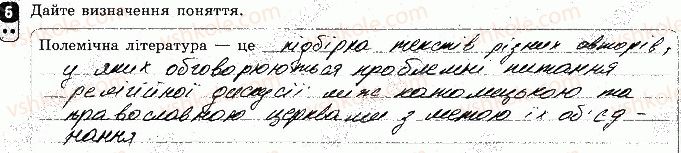 6 Дайте визначення поняття.
Полемічна література — це підбірка текстів різних авторів,
у яких обговорюються проблемні питання
релігійної дискусії між католицькою та
православною церквами з метою їх об'єд-
нання